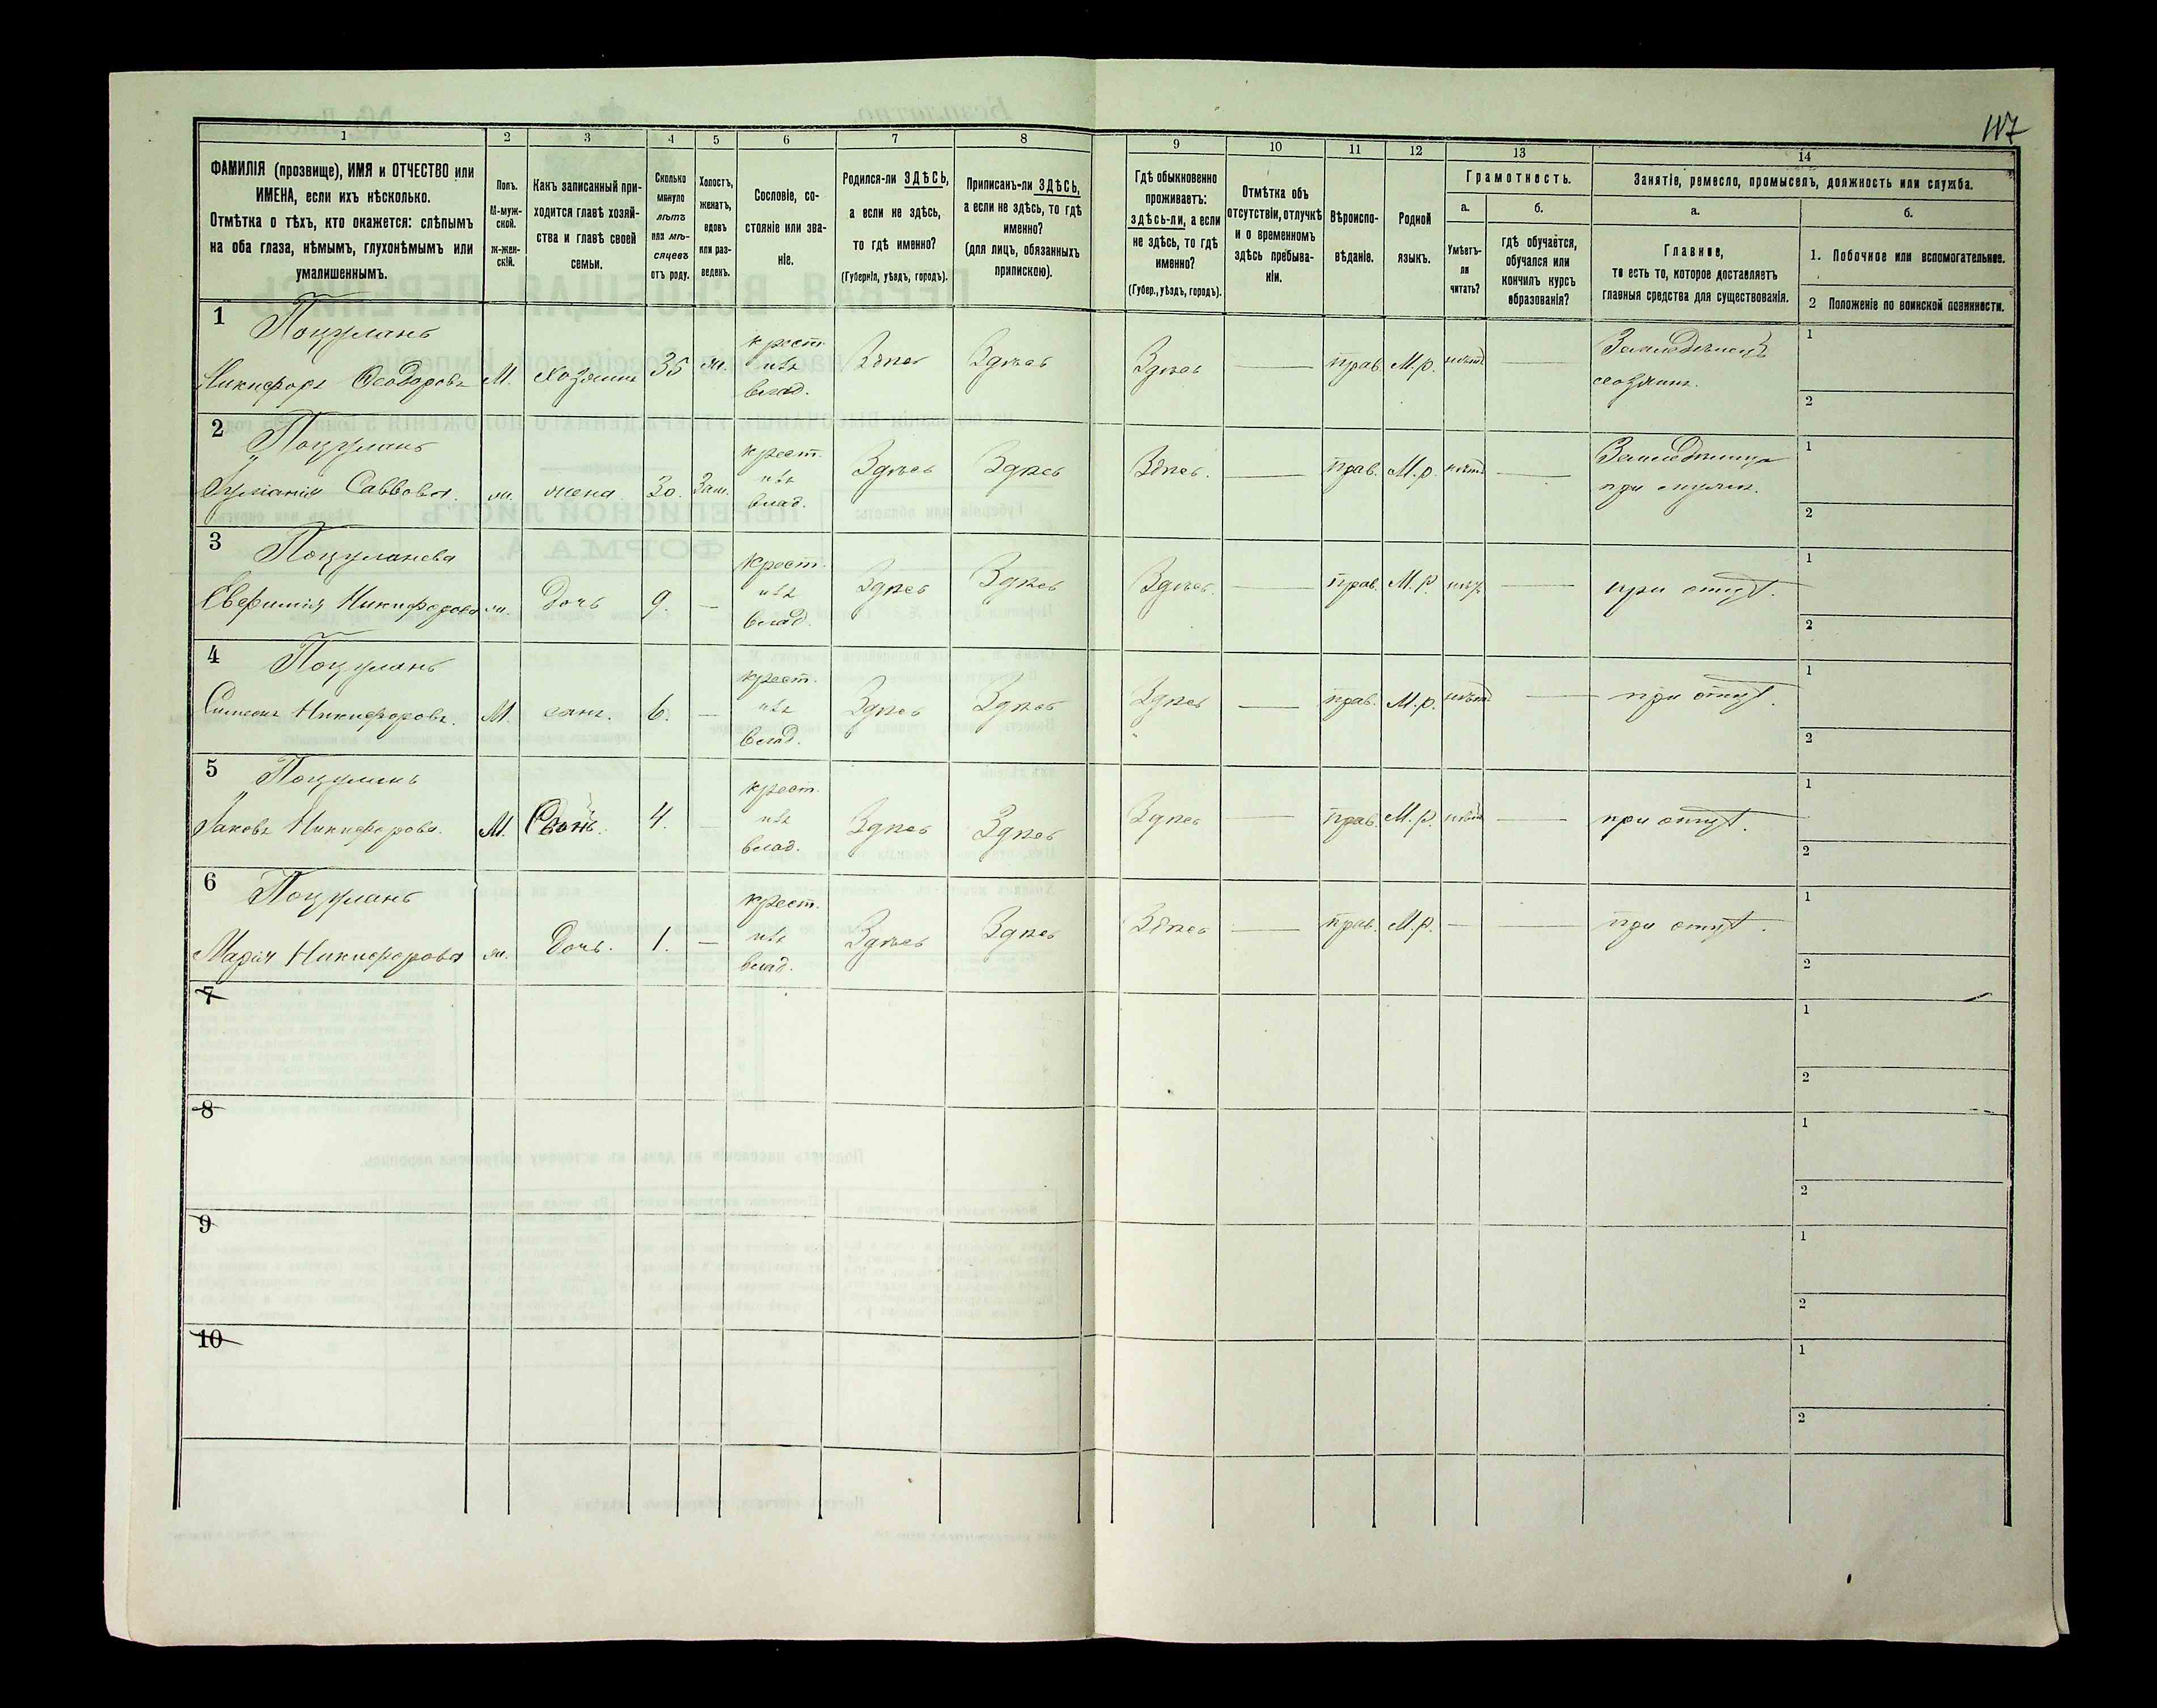 117
1 2 3 4 5 6 7 8 9 10 11 12 13 14
ФАМИЛІЯ (прозвище), ИМЯ и ОТЧЕСТВО или
ИМЕНА, если ихъ нѣсколько.
Отмѣтка о тѣхъ, кто окажется: слѣпымъ
на оба глаза, нѣмымъ, глухонѣмымъ или
умалишеннымъ.
Полъ.
М-муж-
ской.
ж-жен-
скій.
Какъ записанный при-
ходится главѣ хозяй-
ства и главѣ своей
семьи.
Сколько
минуло
лѣтъ
или мѣ-
сяцевъ
отъ роду.
Холостъ,
женатъ,
вдовъ
или раз-
веденъ.
Сословіе, со-
стояніе или зва-
ніе.
Родился-ли ЗДѢСЬ,
а если не здѣсь,
то гдѣ именно?
(Губернія, уѣздъ, городъ).
Приписанъ-ли ЗДѢСЬ,
а если не здѣсь, то гдѣ
именно?
(для лицъ, обязанныхъ
припискою).
Гдѣ обыкновенно
проживаетъ:
здѣсь-ли, а если
не здѣсь, то гдѣ
именно?
(Губер., уѣздъ, городъ).
Отмѣтка объ
отсутствіи, отлучкѣ
и о временномъ
здѣсь пребыва-
ніи.
Вѣроиспо-
вѣданіе.
Родной
языкъ.
Грамотность.
а.
Умѣетъ-
ли
читать?
б.
гдѣ обучается,
обучался или
кончилъ курсъ
образованія?
Занятіе, ремесло, промыселъ, должность или служба.
а.
Главное,
то есть то, которое доставляетъ
главныя средства для существованія.
б.
1. Побочное или вспомогательное.
2 Положеніе по воинской повинности.
1 Поцуланъ
Никифоръ Ѳеодоровъ М. хозяинъ 35 ж. крест. изъ влад. Здѣсь Здѣсь Здѣсь — прав. М.р. нѣтъ — Земледѣлецъ хозяинъ. 1 2
2 Поцуланъ
Саввова. ж. жена 30. Зам. крест. изъ влад. Здѣсь Здѣсь Здѣсь. — прав. М.р. нѣтъ — при мужи. 1 2
3 Поцуланова
Евфимія Никифорова ж. Дочь 9. — крест. изъ влад. Здѣсь Здѣсь Здѣсь. — прав. М.р. — при отцѣ. 1 2
4 Поцуланъ
Симеонъ Никифоровъ. М. сынъ. 6. — крест. изъ влад. Здѣсь Здѣсь Здѣсь — прав. М.р. нѣтъ — при отцѣ. 1 2
5 Поцуланъ
Іаковъ Никифоровъ. М. Сынъ. 4. — крест. изъ влад. Здѣсь Здѣсь Здѣсь — прав. М.р. нѣтъ — при отцѣ. 1 2
6 Поцуланъ
Марія Никифорова ж. Дочь. 1. — крест. изъ влад. Здѣсь Здѣсь Здѣсь — прав. М.р. — — при отцѣ. 1 2
7 1 2
8 1 2
9 1 2
10 1 2